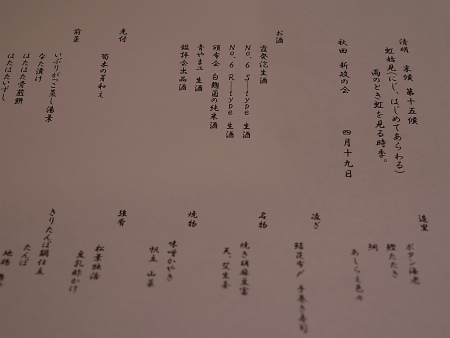 清明 末候 第十五候
虹始見(にじ、はじめてあらわる)
雨のとき虹を見る時季。
秋田 新政の会 四月十九日
お酒
霞発泡生酒
No.6 S-type 生酒
No.6 R-type 生酒
頒布会 白麹菌の純米酒
青やまユ 生酒
鑑評会出品酒
先付
筍木の芽和え
前菜
いぶりがっこ蒸し湯葉
なた漬け
はたはた骨煎餅
はたはたいずし
造里
ボタン海老
鰹たたき
鯛
あしらえ色々
凌ぎ
鯖昆布〆 手巻き寿司
名物
焼き胡麻豆富
天、芝生姜
焼物
味噌かやき
帆立 山菜
強肴
松葉独活
豆乳酢かけ
きりたんぽ鍋仕立
たんぽ